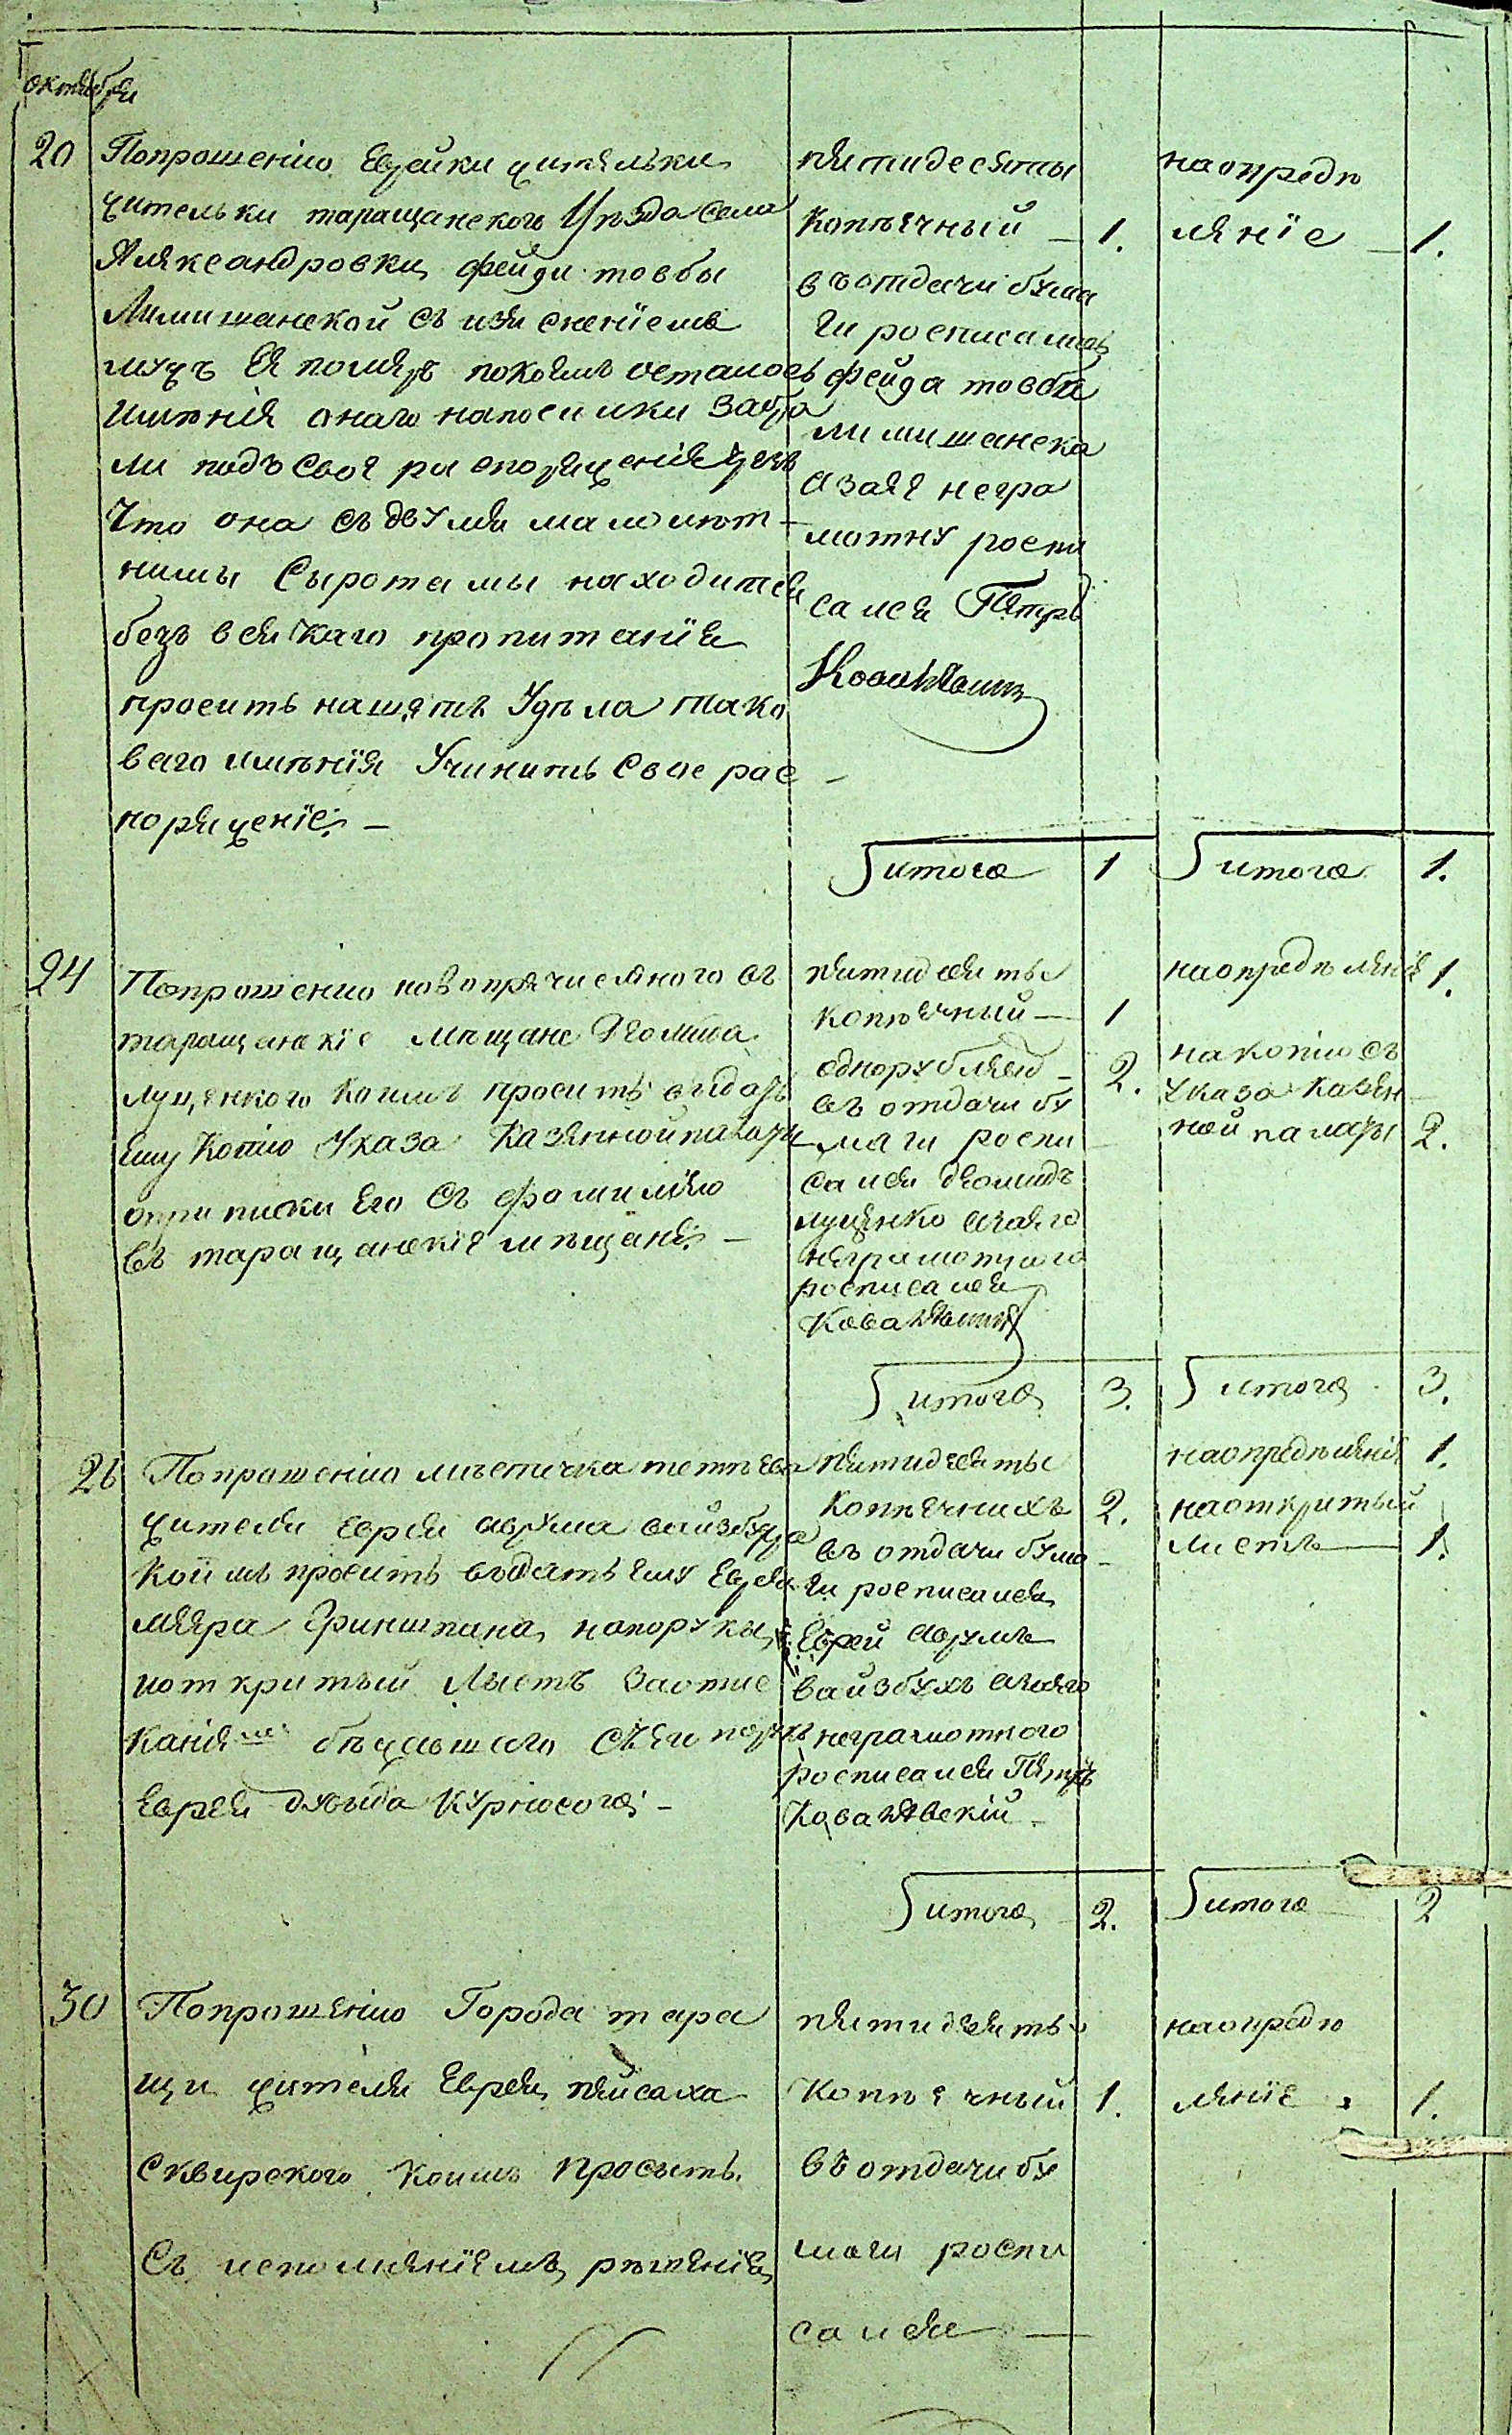 октября
20
Попрошенію Еврейки жительки
жительки таращанского Уѣзда Села
Александровки, фейги товбы
съ изяснениемъ
мужъ Ея померъ осталось
имѣнія онаго напосилки забра
ли подъ своя распоряженія
что она съ двумя малолѣт-
нимы Сыротамы находится
безъ всякаго пропитанія
просить Уѣзда тако
ваго имѣнія Учинить Свое рас-
поряженіе. —
пятидесяты
Копѣечный — 1.
въ отдачи бума
ги росписалась
фейга товба
азаея негра
мотну роспи
сался Петръ
наопредѣ
ленїе — 1.
итого 1
итого 1.
24
Попрошенію новопричисляного въ
таращанскіе мѣщане
луценкого коимъ проситъ выдать
ему Копію Указа Казенной палаты
оприписки Его съ фамилїею
въ таращанскія мѣщаня. —
пятидесяты
копѣечный — 1
однорублевой — 2.
въ отдачи бу
маги роспи
сался
луценко азаяго
неграмотного
росписался
наопредѣленія 1.
на копію съ
указа Казен
ной палаты 2.
итого 3.
итого 3.
26
Попрошенію мѣстечка тетѣева
жителя Еврея аврума вайзбуха
коимъ проситъ выдать ему Еврея
меера Финштина, напоруки,
иоткритый Листъ Заотис
канія бѣжавшаго
Еврея дувыда Курносого. —
пятидесяты
копѣечнихъ 2.
въ отдачи бума-
ги росписался
Еврей аврумъ
вайзбухъ азаяго
неграмотного
росписался Петръ
Ковалевскій —
наопредѣленія 1.
наоткритый
листъ — 1.
итого 2.
итого 2
30
Попрошенію Города тара
щи жителя Еврея пейсаха
сквирского Коимъ Просыть.
Съ исполненїемъ рѣшенїя
пятидесяты
Копѣечный 1.
въ отдачи бу
маги роспи
сался —
наопредѣ
ленїе 1.